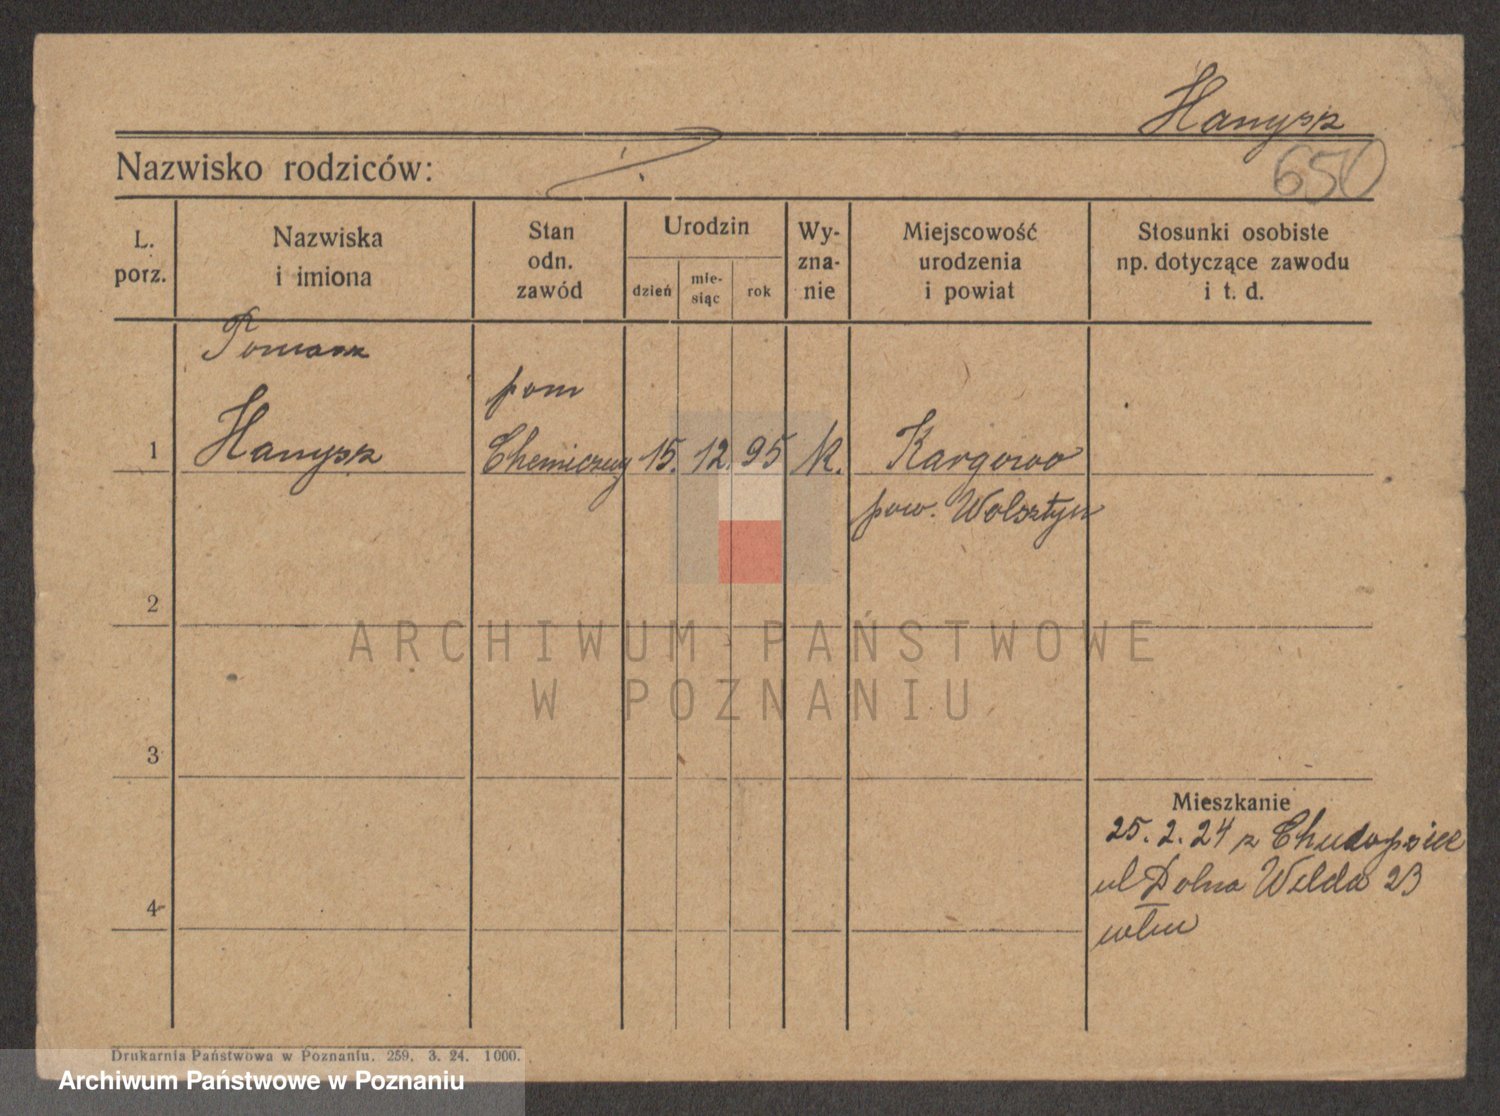 Hanysz
650
Nazwisko rodziców:
L. porz.
Nazwiska i imiona
Stan odn. zawód
Urodzin
dzień
mie-
siąc
rok
Wy-
zna-
nie
Miejscowość
urodzenia
i powiat
Stosunki osobiste
np. dotyczące zawodu
i t. d.
Tomasz
pom
1 Hanysz Chemiczny 15. 12. 95 k. Kargowo
pow. Wolsztyn
2
3
4
Mieszkanie
25. 2. 24 z Chudopsic
ul Dolna Wilda 23
ARCHIWUM PAŃSTWOWE
W POZNANIU
Drukarnia Państwowa w Poznaniu. 259. 3. 24. 1000.
Archiwum Państwowe w Poznaniu